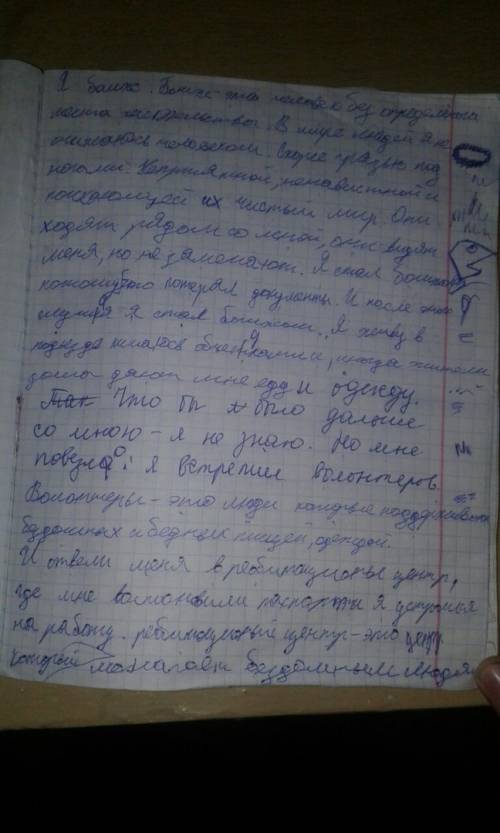 Я бомж. Бомж - это человек без определенного
места жительства. В мире людей я не
считаюсь человеком. Скорее грязью под
ногами. Неприятной, ненавистной и
их чистый мир. Они
ходят рядом со мной, они видят
меня, но не замечают. Я стал бомжом
потерял документы. И после этого
я стал бомжом. Я живу в
подъезде питаюсь объедками, иногда жители
дома дают мне еду и одежду.
Что бы было дальше
со мною - я не знаю. Но мне
повезло: я встретил волонтеров
Волонтеры - это люди которые поддерживают
бездомных и бедных пищей, одеждой.
И отвели меня в центр,
где мне востановили паспорт и я устроился
на работу. центр - это центр
который помогает бездомным людям